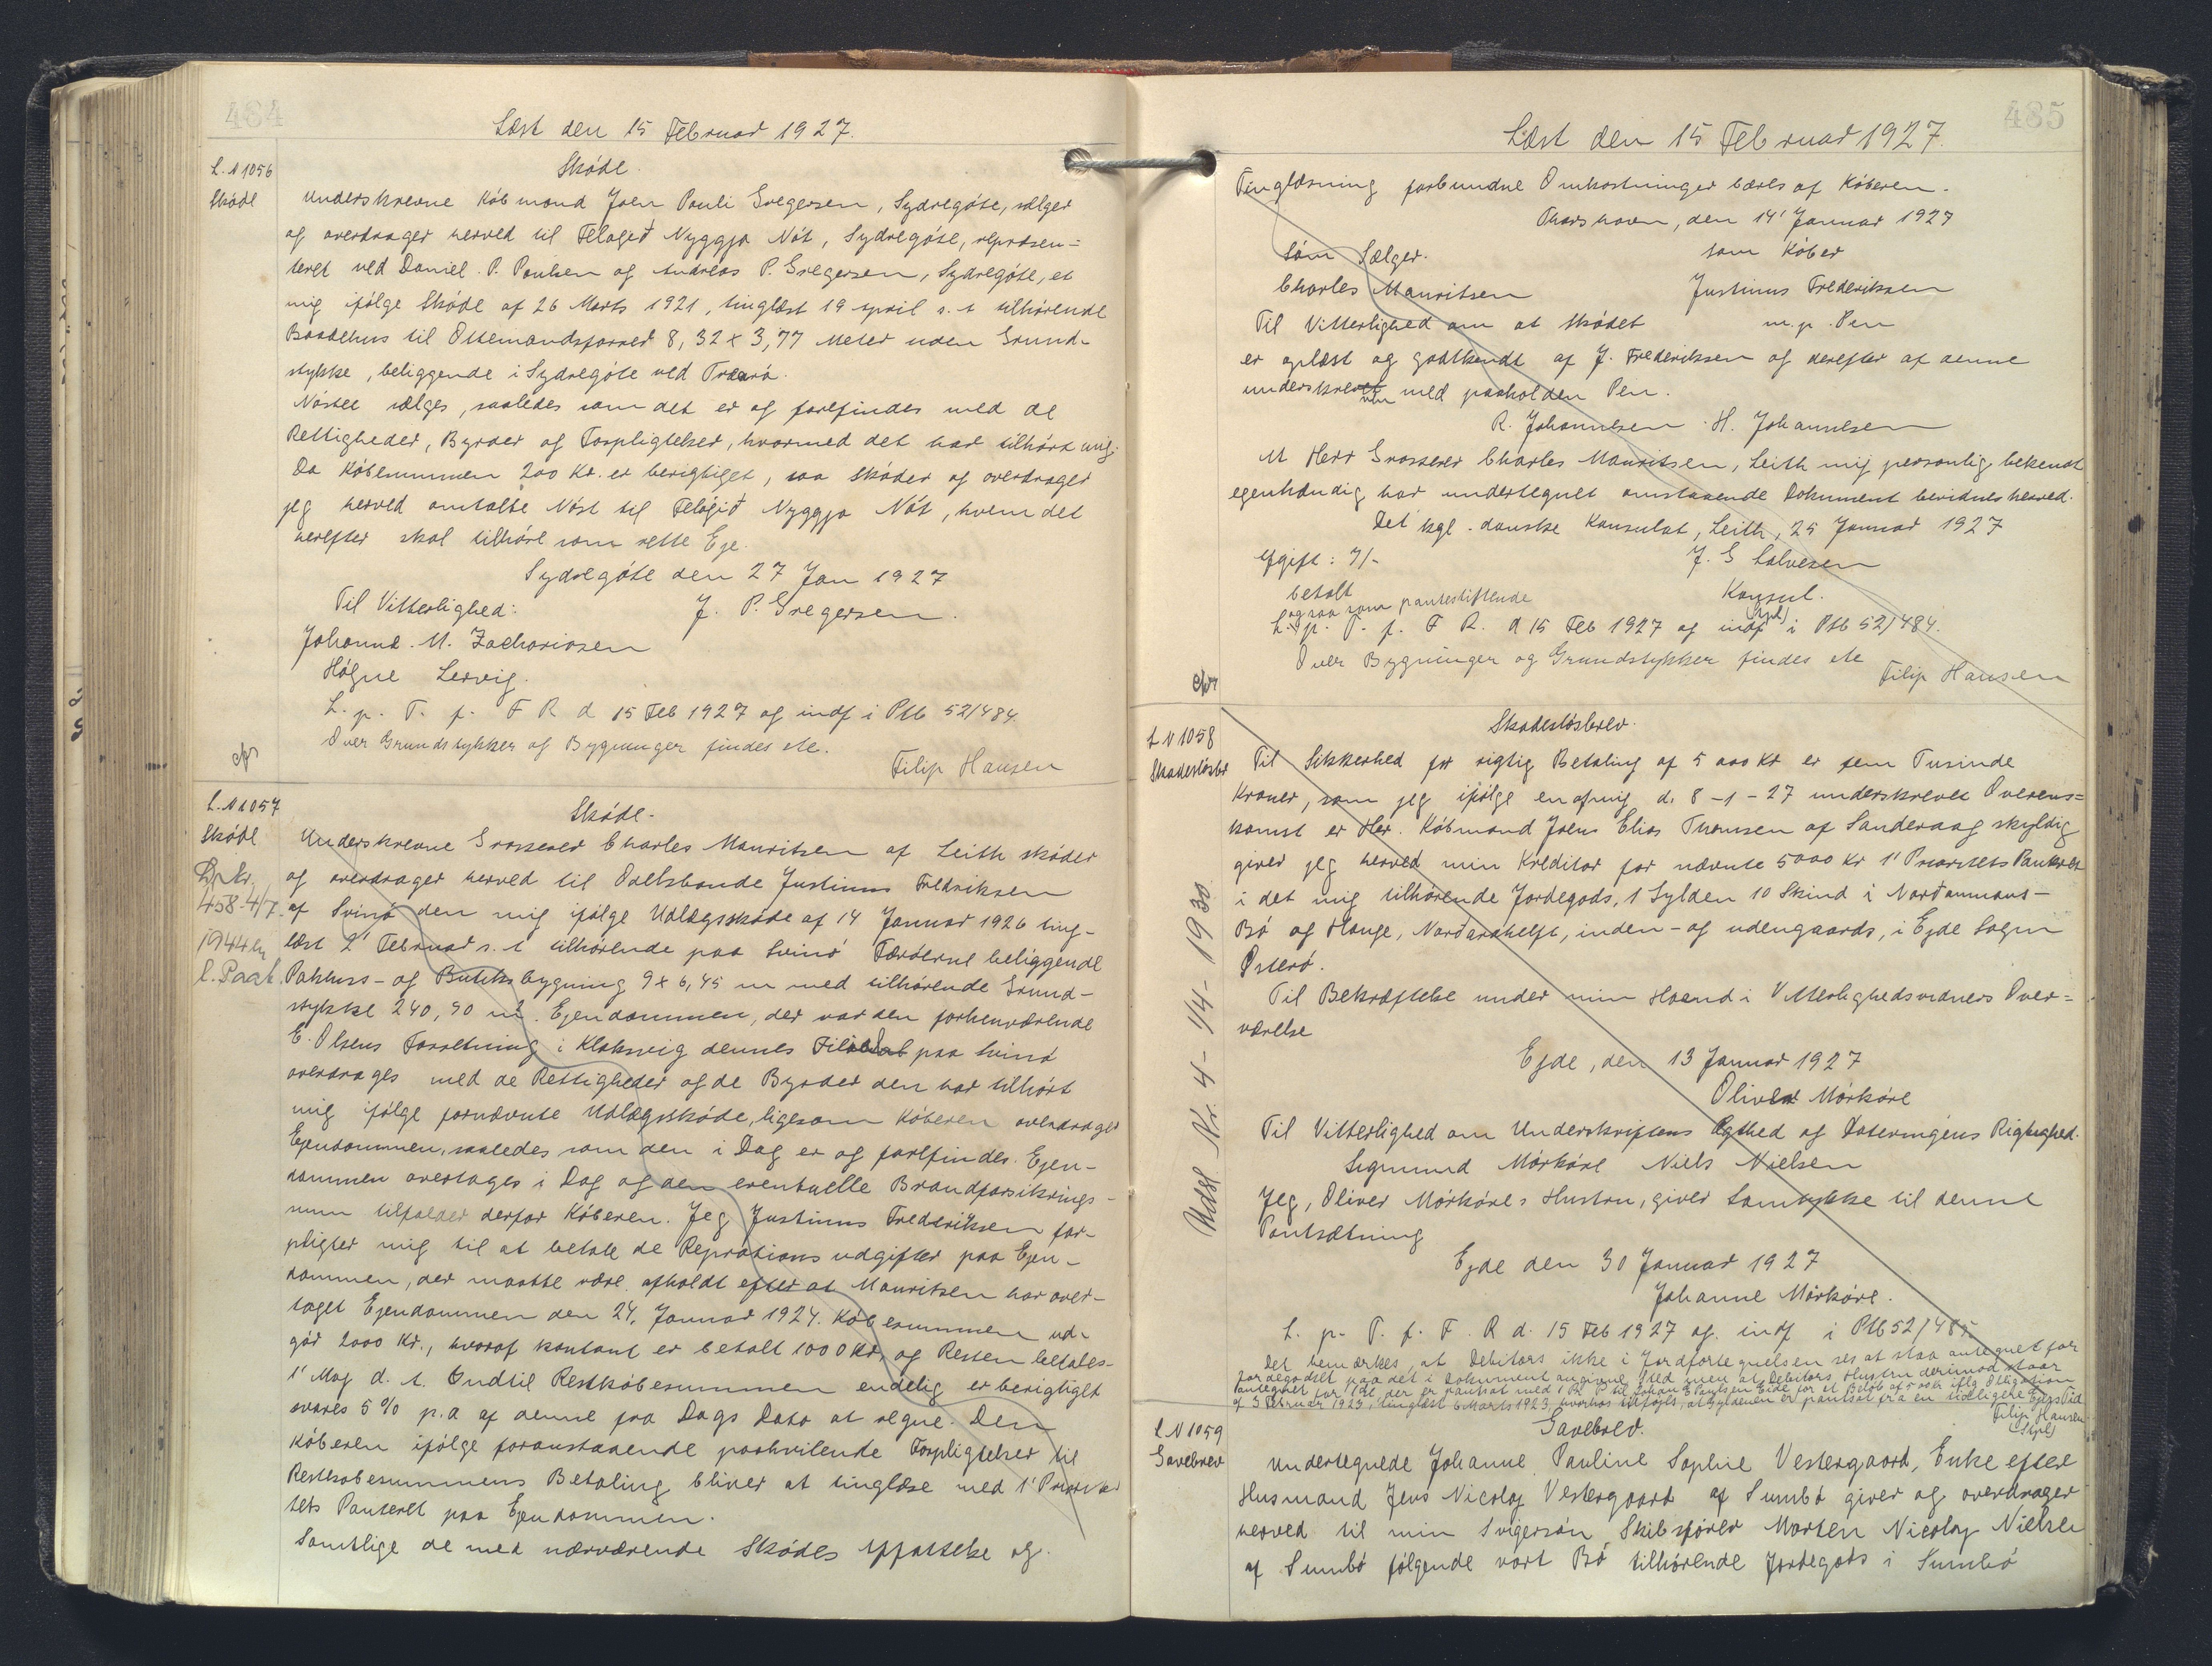 484
Læst den 15 Februar 1927.
L. N 1056
Skóde
Skóde.
Underskrevne Købmand Joen Pauli Gregersen, Sydregóte, sælger
og overdrager herved til Felagið Nyggja Nót, Sydregóte, repræsen=
teret ved Daniel. P. Poulsen og Andreas P. Gregersen, Sydregóte, et
mig ifólge Skóde af 26 Marts 1921, tinglæst 19 april s. A tilhórende
Baadehus til Ottemandsfarred 8,32 x 3,77 Meter uden Grund-
stykke, beliggende i Sydregóte ved
Nóstet sælges, saaledes som det er og forefindes med de
Rettigheder, Byrder og Forpligtelser, hvormed det har tilhórt mig.
Da Kóbesummen 200 Kr. er berigtiget, saa skóder og overdrager
jeg herved omtalte Nóst til Felógið Nyggja Nót, hvem det
herefter skal tilhóre som rette Eje.
Sydregóte den 27 Jan 1927
Til Vitterlighed:
J. P. Gregersen.
Johanna. M. Zachariasen
Hógne Lervig.
L. p. T. f. F R d 15 Feb 1927 og indf i Ptb 52/484.
Over Grundstykker og Bygninger findes ete.
Filip Hansen
L. N 1057
Skóde
458-4/7.
1944
Skóde-
Underskrevne Grosserer Charles Mauritsen af Leith skóder
og overdrager herved til Odelsbonde Justinus Fredriksen
af Svinó den mig ifólge Udlægsskóde af 14 Januar 1926 ting-
læst 2' Februar s. A tilhórende paa Svinó Færóerne beliggende
Pakhus- og Butiksbygning 9 x 6,45 m med tilhórende Grund-
stykke 240,90 m². Ejendommen, der var den forhenværende
E. Olsens Forretning i Klaksvig dennes Filial paa Svinó
overdrages med de Rettigheder og de Byrder den har tilhórt
mig ifólge fornævnte Udlægsskóde, ligesom Kóberen overdrages
Ejendommen, saaledes som den i Dag er og forefindes. Ejen-
dommen overtages i Dag og den eventuelle Brandforsikrings-
sum tilfalder derfor Kóberen. Jeg Justinus Fredriksen for-
pligter mig til at betale de Reprations udgifter paa Ejen-
dommen, der maatte være afholdt efter at Mauritsen har over-
taget Ejendommen den 24. Januar 1924. Kóbesummen ud-
gór 2000 Kr., hvoraf kontant er betalt 1000 Kr, og Resten betales-
1' Maj d. A. Indtil Restkóbesummen endelig er berigtiget
svares 5% p.a af denne fra Dags Dato at regne. Den
Kóberen ifólge foranstaaende paahvilende Forpligtelser til
Restkóbesummens Betaling bliver at tinglæse med 1' Priori
tets Panteret paa Ejendommen.
Samtlige de med nærværende Skódes Affattelse og
485
Læst den 15 Februar 1927.
Tinglæsning forbundne Omkostninger bæres af Kóberen.
Thorshavn, den 14' Januar 1927
Som Sælger.
som Kóber
Charles Mauritsen
Justinus Frederiksen
Til Vitterlighed om at Skódet
m. p. Pen
er oplæst og godtkendt af J. Frederiksen og derefter af denne
underskreven med paaholden Pen.
R. Johannesen H. Johannesen
At Herr Grosserer Charles Mauritsen, Leith mig personlig bekendt
egenhændig har undertegnet omstaaende Dokument bevidnes herved.
Det kgl. danske Konsulat, Leith, 25 Januar 1927
Afgift: 7/-
J. G Salvesen
betalt
Konsul.
ogsaa som pantestiftende
L. p. T. f. F R. d 15 Feb 1927 og indf i Ptb 52/484.
Over Bygninger og Grundstykker findes ete
Filip Hansen
L N 1058
Skadeslósbr
Udsl. Kr. 4- 1/4- 1930.
Skadeslósbrev.
Til Sikkerhed for rigtig Betaling af 5000 Kr er fem Tusinde
Kroner, som jeg ifólge en af mig d. 8-1-27 underskrevet Overens=
komst er Her. Kóbmand Joens Elias Thomsen af Sanderaag skyldig
giver jeg herved min Kreditor for nævnte 5000 Kr 1' Prioritets Panteret
i det mig tilhórende Jordegods, 1 Gylden 10 Skind i Norðanmans-
Bó og Hauge, Norðarahelft, inden- og udengaards, i Ejde Sogn
Østeró.
Til Bekræftelse under min Haand i Vitterlighedsvidners Over=
værelse
Ejde, den 13 Januar 1927
Oliver Mórkóre
Til Vitterlighed om Underskriftens Ægthed og Dateringens Rigtighed.
Sigmund Mórkóre Niels Nielsen
Jeg, Oliver Mórkóre's Hustru, giver Samtykke til denne
Pantsætning
Ejde den 30 Januar 1927
Johanne Mórkóre.
L. p. T. f. F. R d. 15 Feb 1927 og. indf i Ptb 52/485
Det bemærkes, at Debitors ikke i Jordfortegnelsen ses at staa antegnet for
Jordegodset paa det i Dokument angivne Sted men at Debitors Hustru derimod staar
antegnet for 1 Gl. der er pantsat med 1 R. P til Johan E Poulsen Eide for et Beløb af 500 kr iflg Obligation
af 3 Februar 1923, tinglæst 6 Marts 1923, hvorhos tilføjes, at Gyldenen er pantsat fra en tidligere Ejers Tid
Filip Hansen
L N 1059
Gavebrev
Gavebrev.
Undertegnede Johanne Pauline Sophie Vestergaard, Enke efter
Husmand Jens Nicolaj Vestergaard af Sumbó giver og overdrager
herved til min Svigersón, Skibsfórer Morten Nicolaj Nielsen
af Sumbó fólgende vort Bó tilhórende Jordegods i Sumbó